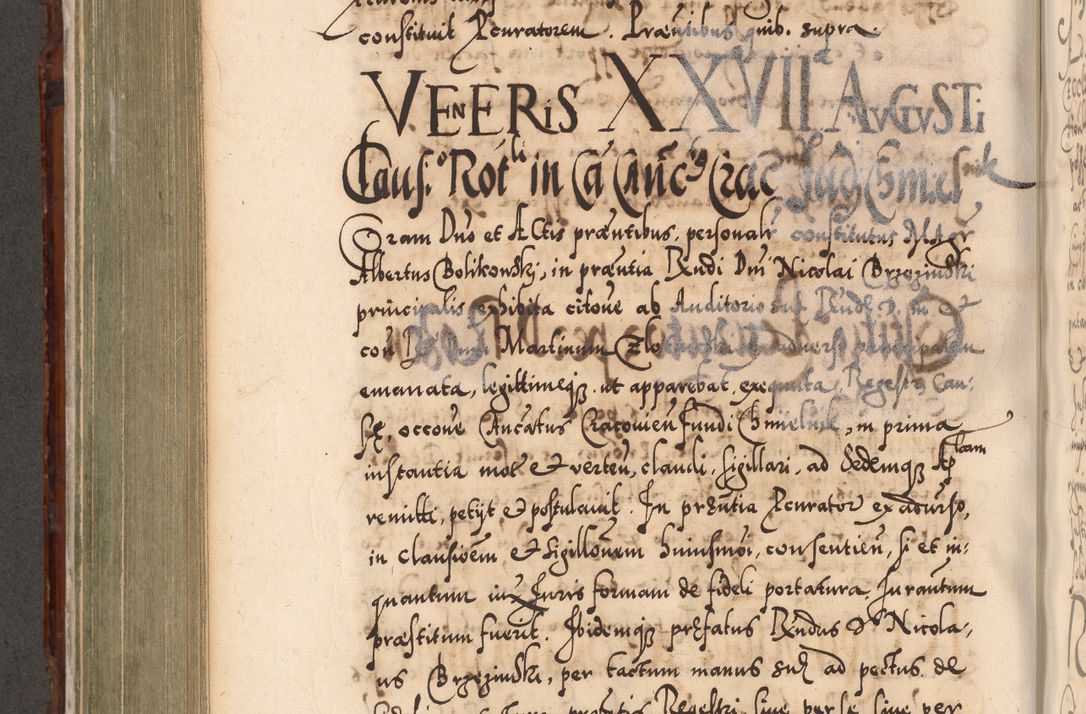 constituit Pcuratorem. Præntibus quib. supra
VENERIS XXVII AVGVSTi
Claus.º Rotli in Ca Cancº Crac
Coram Dno et Actis præntibus, personalr constitutus Mgr
Albertus Bolikowski, in præntia Rndi Dni Nicolai Brzezinski
principalis exhibita citoue ab Auditorio
con Martinum
emanata, legittimeqz. ut apparebat exequuta. Regestri Cau-
sæ, occoue Cancatus Cracouien fundi Chmielnik, in prima
instantia mot et verten, claudi, sigillari, ad Sedemqz Ap
lcam
remitti, petijt et postulauit. In præntia Pcurator ex aduerso,
in clausioem et sigillouem huiusmoi, consentien, si et in-
quantum iux Juris formam de fideli portatura Juratum
præstitum fuerit. Ibidemqz præfatus Rndus D. Nicola-
us Brzezinski, per tactum manus suæ ad pectus de
Regestri, siue per se siue per